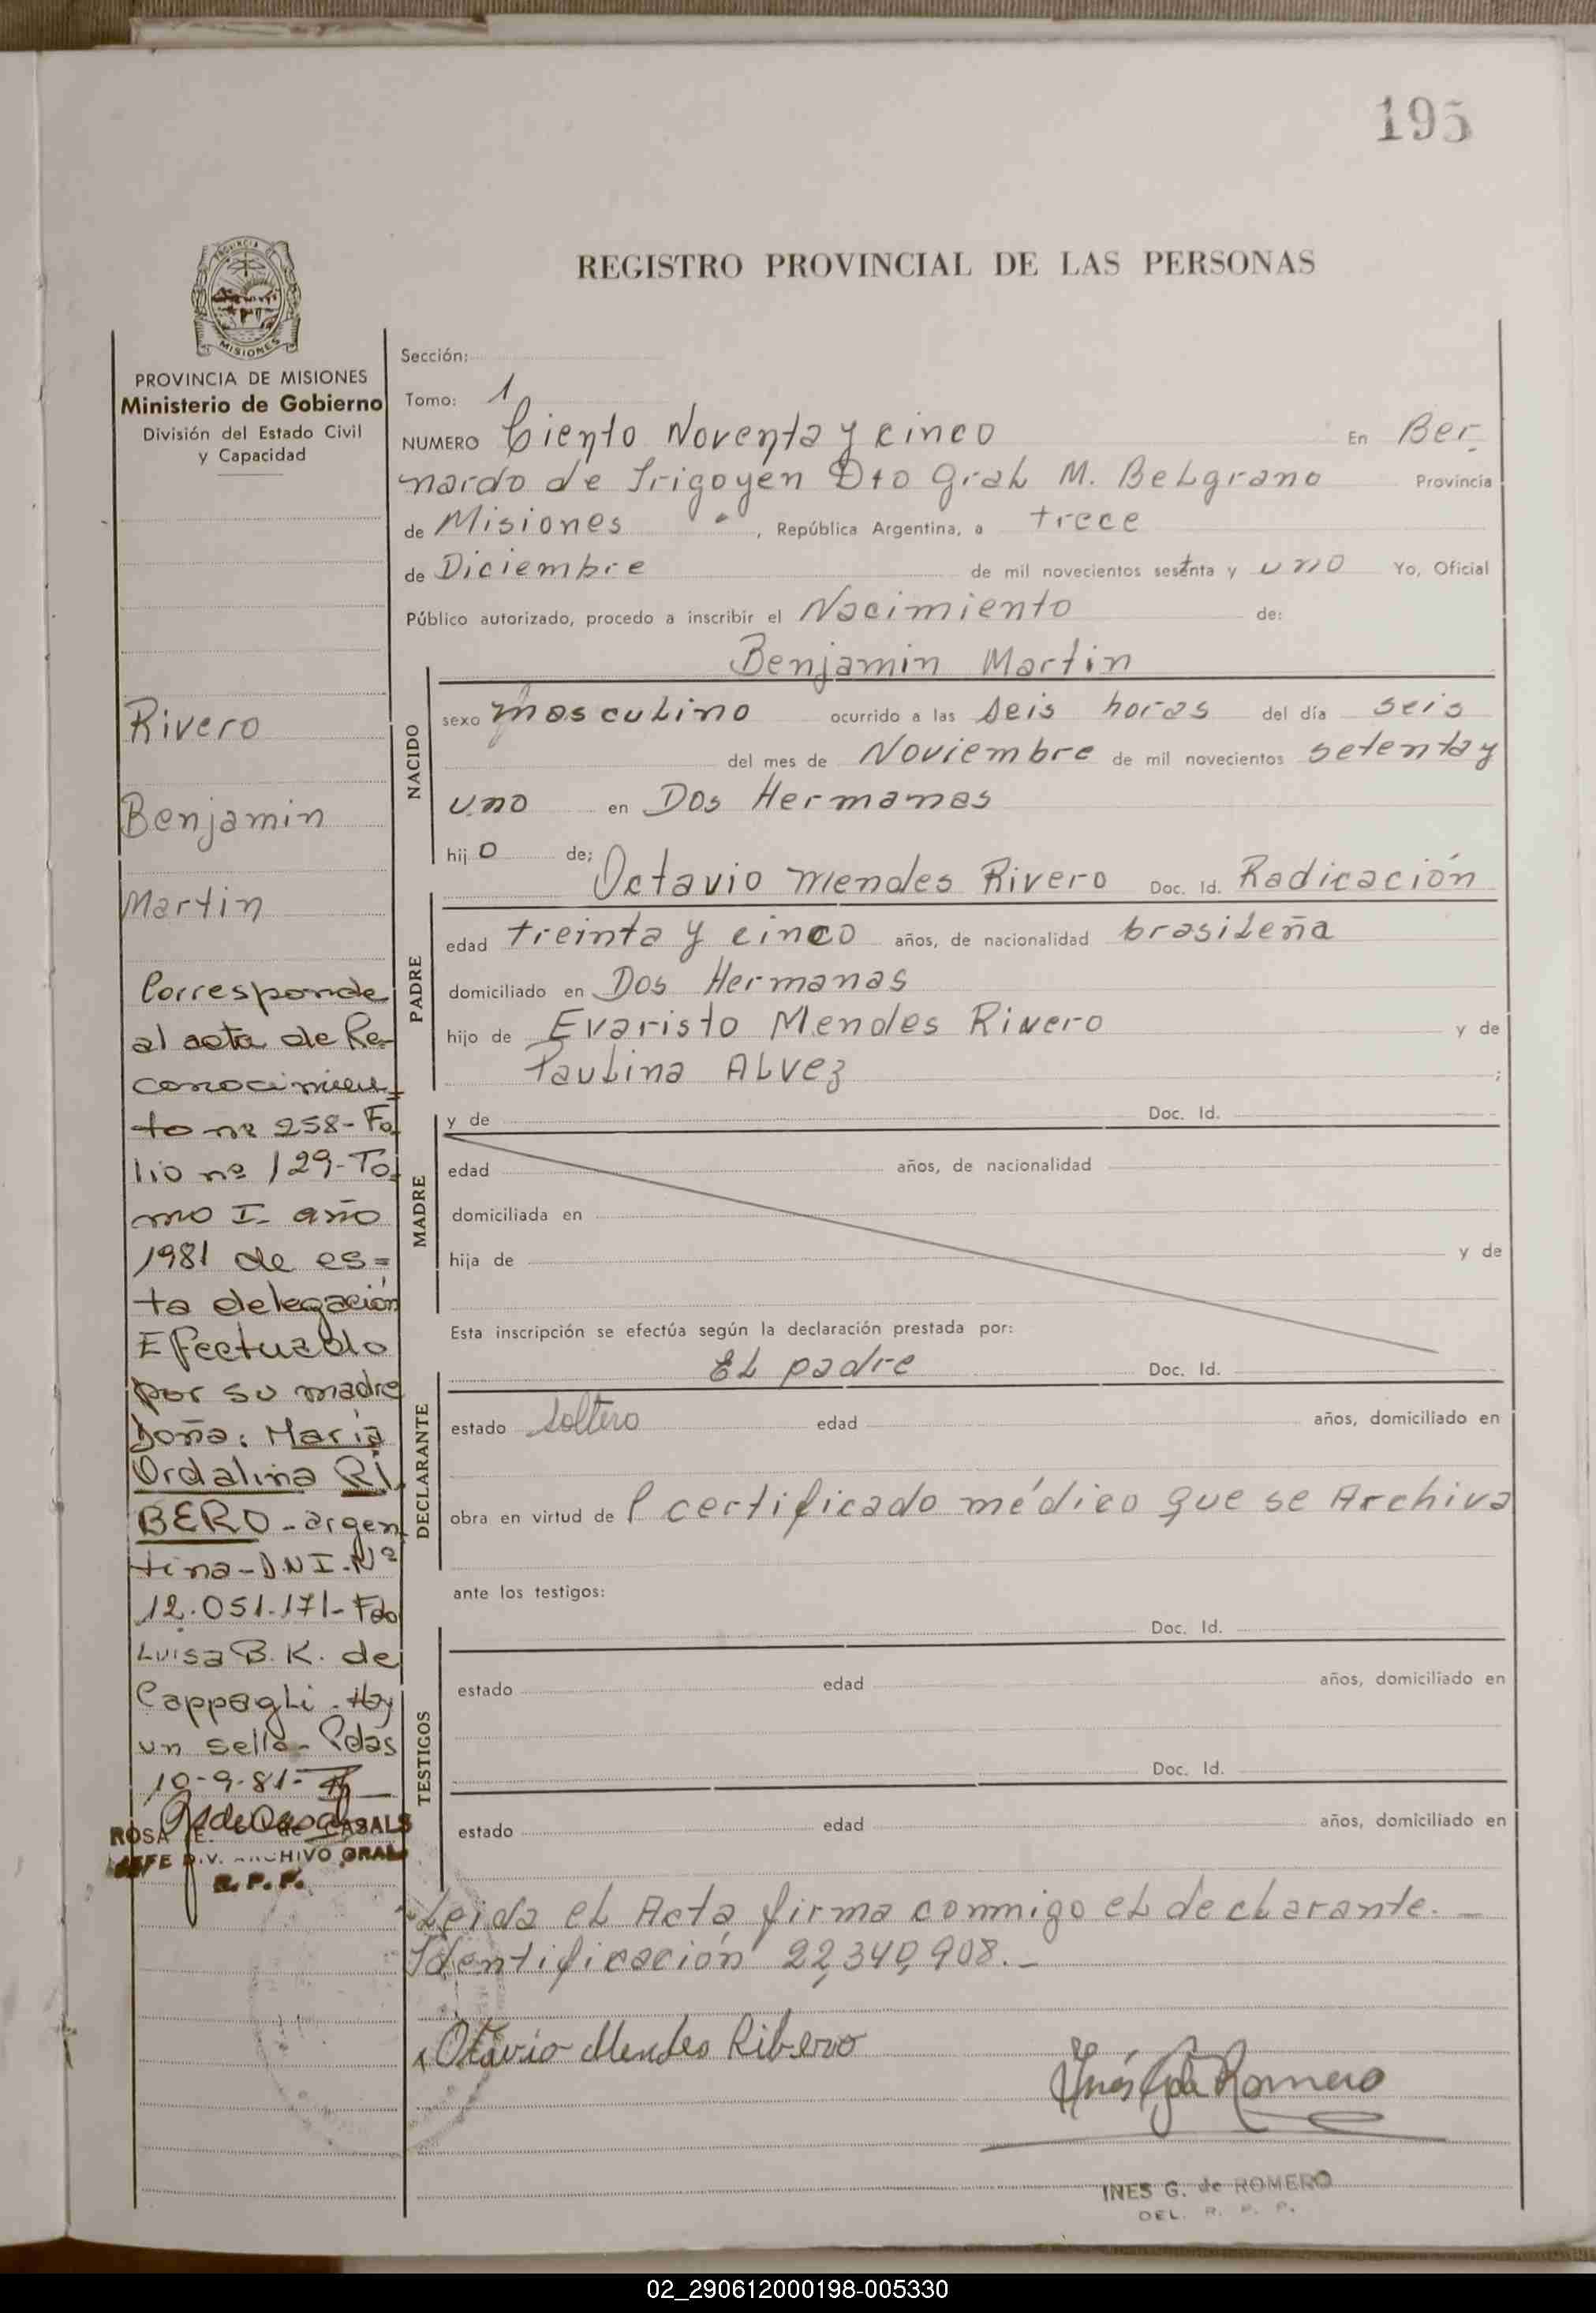 195
REGISTRO PROVINCIAL DE LAS PERSONAS
PROVINCIA DE MISIONES
Ministerio de Gobierno
División del Estado Civil
y Capacidad
Rivero
Benjamin
Martin
Corresponde
al acta de Re-
conocimien=
to nº 258-Fo
lio nº 129-To
mo I- año
1981 de es=
ta delegación
Efectuado
por su madre
Doña: María
Ordalina RI
BERO-argen
tina-D.N.I.Nº
12.051.171-Fdo
Luisa B.K. de
Cappagli-Hay
un sello-Pdas
10-9-81-
ROSA E. de CASALS
JEFE DIV. ARCHIVO GRAL
R.P.P.
Sección:
Tomo: 1
NUMERO Ciento Noventa y cinco En Ber
nardo de Irigoyen Dto Gral M. Belgrano Provincia
de Misiones, República Argentina, a trece
de Diciembre de mil novecientos setenta y uno Yo, Oficial
Público autorizado, procedo a inscribir el Nacimiento de:
Benjamin Martin
NACIDO
sexo masculino ocurrido a las seis horas del día seis
del mes de Noviembre de mil novecientos setenta y
uno en Dos Hermanas
hijo de;
PADRE
Octavio Mendes Rivero Doc. Id. Radicación
edad treinta y cinco años, de nacionalidad brasileña
domiciliado en Dos Hermanas
hijo de Evaristo Mendes Rivero y de
Paulina Alvez ;
MADRE
y de Doc. Id.
edad años, de nacionalidad
domiciliada en
hija de y de
Esta inscripción se efectúa según la declaración prestada por:
DECLARANTE
El padre Doc. Id.
estado Soltero edad años, domiciliado en
obra en virtud de l certificado médico que se Archiva
ante los testigos:
TESTIGOS
Doc. Id.
estado edad años, domiciliado en
Doc. Id.
estado edad años, domiciliado en
Leida el Acta firma conmigo el declarante.-
Identificación 22,340,908.-
Otavio Mendes Ribero
Inés G de Romero
INES G. de ROMERO
DEL. R. P. P.
02_290612000198-005330